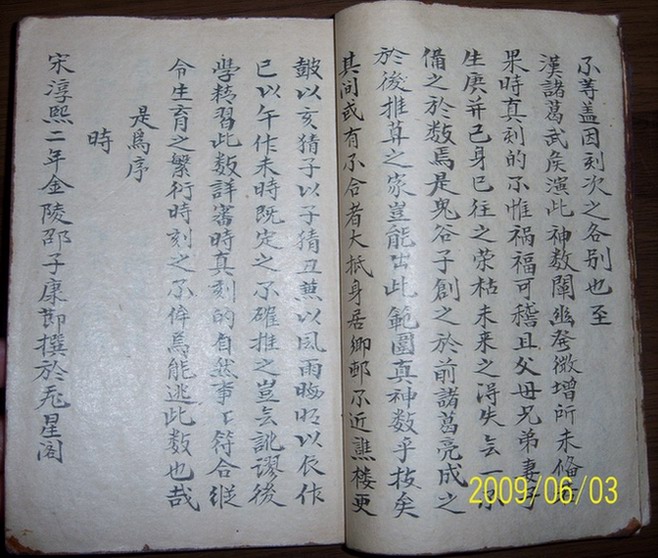 不等盖因刻次之各别也至
漢諸葛武侯演此神数闡幽叅微增所未俻
果時真刻的不惟禍福可稽且父母兄弟妻子
生庚并己身已往之荣枯未来之得失亡一不
俻之於数焉是鬼谷子創之於前諸葛亮成之
於後推算之家豈能出此範圍真神数乎技矣
其间或有不合者大抵身居鄉邨不近譙楼更
皷以亥猜子以子猜丑兼以風雨晦明以辰作
巳以午作未時既定之不確推之豈亡訛謬後
學精習此数詳審時真刻的自然事〻符合縦
令生育之繁衍時刻之不侔焉能逃此数也哉
是爲序
時
宋淳熙二年金陵邵子康節撰於星阁
2009/06/03